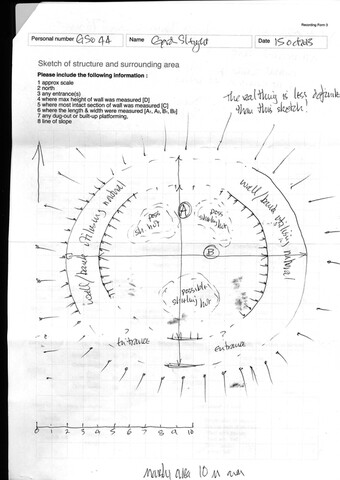 Recording Form 3
Personal number GS0 44
Name
Date 15 Oct 2013
Sketch of structure and surrounding area
Please include the following information :
1 approx scale
2 north
3 any entrance(s)
4 where max height of wall was measured [D]
5 where most intact section of wall was measured [C]
6 where the length & width were measured [A₁, A₂, B₁, B₂]
7 any dug-out or built-up platforming.
8 line of slope
The real thing is less definite
than this sketch!
wall/bank utilising natural
wall/bank utilising natural
poss
sh. hut
A
poss
shieling hut
B
possible
shieling hut
?
entrance
?
entrance
0 1 2 3 4 5 6 7 8 9 10
10 m